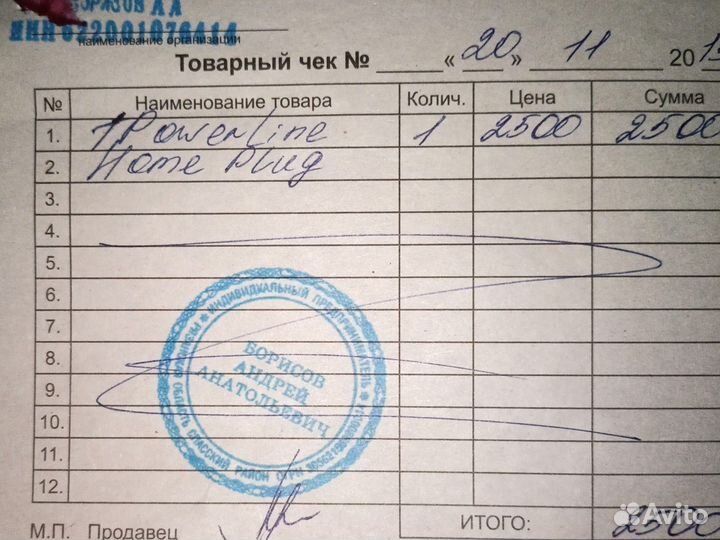 БОРИСОВ А А
ИНН 622001076414
наименование организации
Товарный чек № « 20 » 11 201
№ Наименование товара Колич. Цена Сумма
1. PowerLine 1 2500 2500
2. Home Plug
3.
4.
5.
6.
7.
8.
9.
10.
11.
12.
ИНДИВИДУАЛЬНЫЙ ПРЕДПРИНИМАТЕЛЬ
БОРИСОВ
АНДРЕЙ
АНАТОЛЬЕВИЧ
ОБЛАСТЬ СПАССКИЙ РАЙОН ОГРН
М.П. Продавец ИТОГО: 2500
Avito